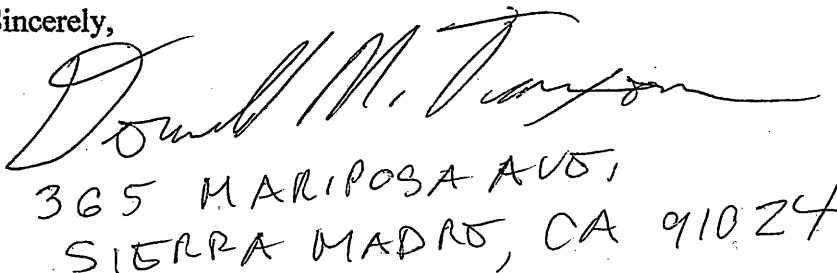 Sincerely,
Donald M.
365 MARIPOSA AVE,
SIERRA MADRE, CA 91024